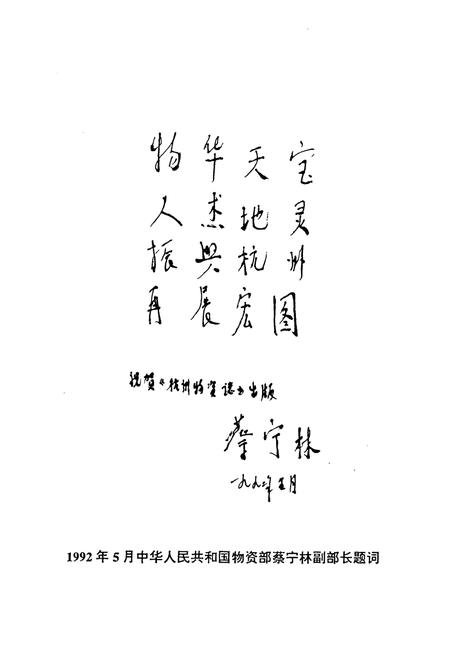 物华天宝
人杰地灵
振兴杭州
再展宏图
祝贺《杭州物资志》出版
蔡宁林
一九九二年五月
1992年5月中华人民共和国物资部蔡宁林副部长题词